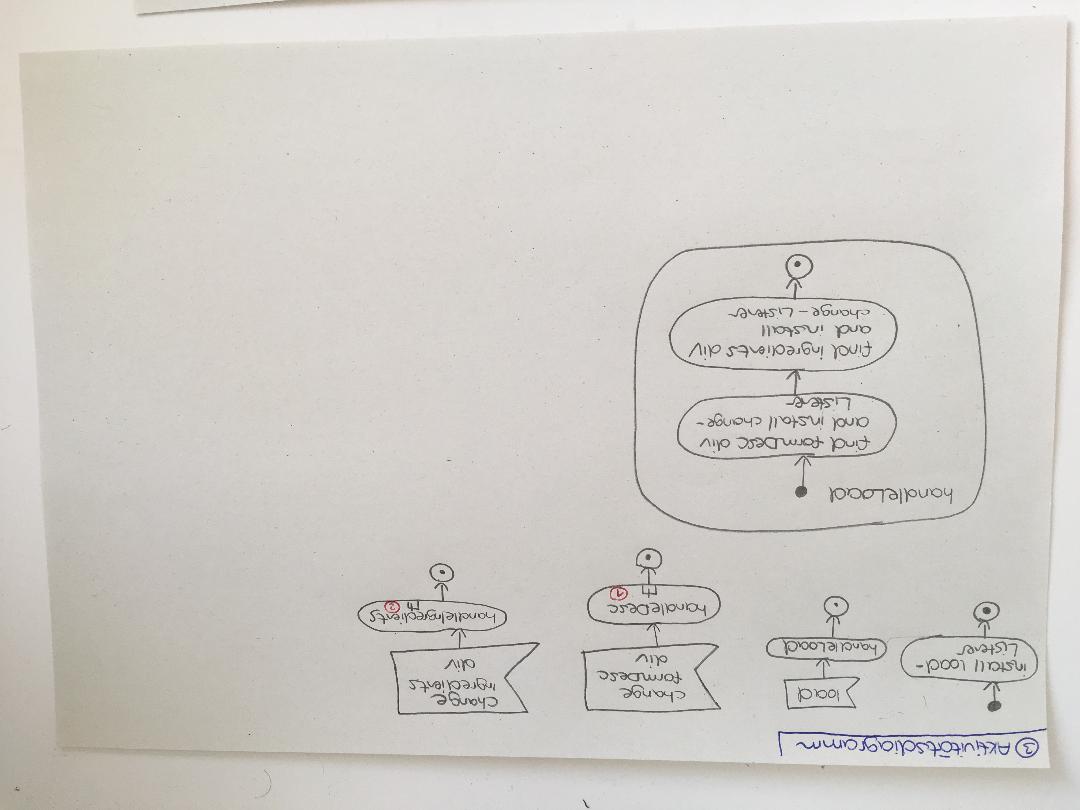 ③ Aktivitätsdiagramm
install load-
Listener
load
handleLoad
change
formDesc
div
handleDesc
①
change
ingredients
div
handleIngredients
②
handleLoad
find formDesc div
and install change-
Listener
find ingredients div
and install
change-Listener